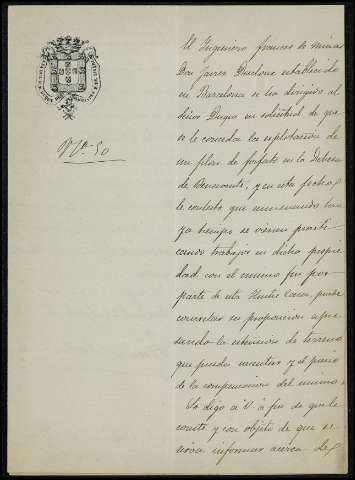 Nº 50
El Ingeniero frances de minas
Don Javier Duclone establecido
en Barcelona se ha dirigido al
Señor Duque en solicitud de que
se le conceda la esplotacion de
un filon de fosfato en la Dehesa
de Benavente, y en esta fecha
le contesto que
ya tiempo se vienen practi
cando trabajos en dicha propie
dad con el mismo fin por
parte de esta Ilustre Casa, puede
concretar su proposicion espre
sando la estension de terreno
que pueda necesitar y el precio
de la compensacion del mismo.
Lo digo a V. a fin de que le
conste y con objeto de que se
sirva informar acerca de